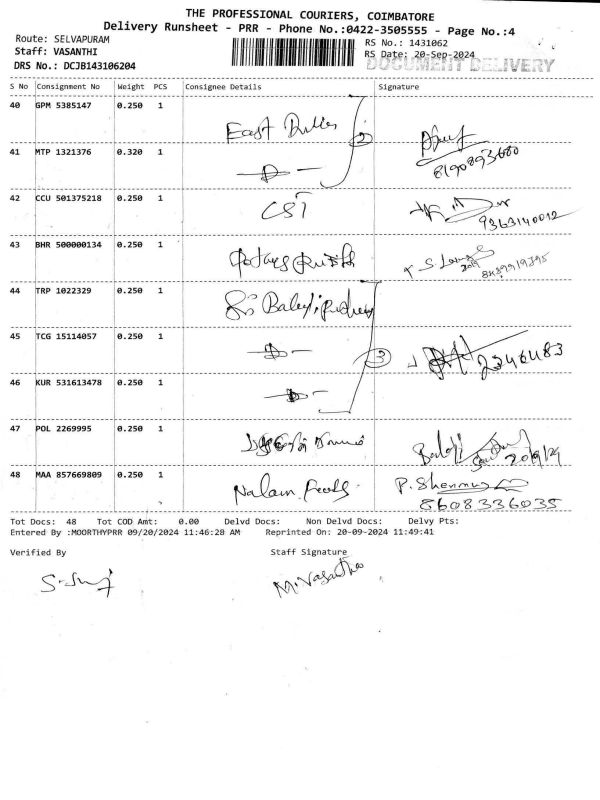 THE PROFESSIONAL COURIERS, COIMBATORE
Delivery Runsheet - PRR - Phone No.:0422-3505555 - Page No.:4
Route: SELVAPURAM
RS No.: 1431062
Staff: VASANTHI
RS Date: 20-Sep-2024
DRS No.: DCJB143106204
DOCUMENT DELIVERY
S No Consignment No Weight PCS Consignee Details Signature
40 GPM 5385147 0.250 1
East
2
41 MTP 1321376 0.320 1
8190893680
42 CCU 501375218 0.250 1 CST
9363140012
43 BHR 500000134 0.250 1
44 TRP 1022329 0.250 1
45 TCG 15114057 0.250 1
3
2346483
46 KUR 531613478 0.250 1
47 POL 2269995 0.250 1
Balaji
48 MAA 857669809 0.250 1 Nalam Foods P. Shenmu
8608336035
Tot Docs: 48 Tot COD Amt: 0.00 Delvd Docs: Non Delvd Docs: Delvy Pts:
Entered By :MOORTHYPRR 09/20/2024 11:46:28 AM Reprinted On: 20-09-2024 11:49:41
Verified By Staff Signature
M. Vasantha